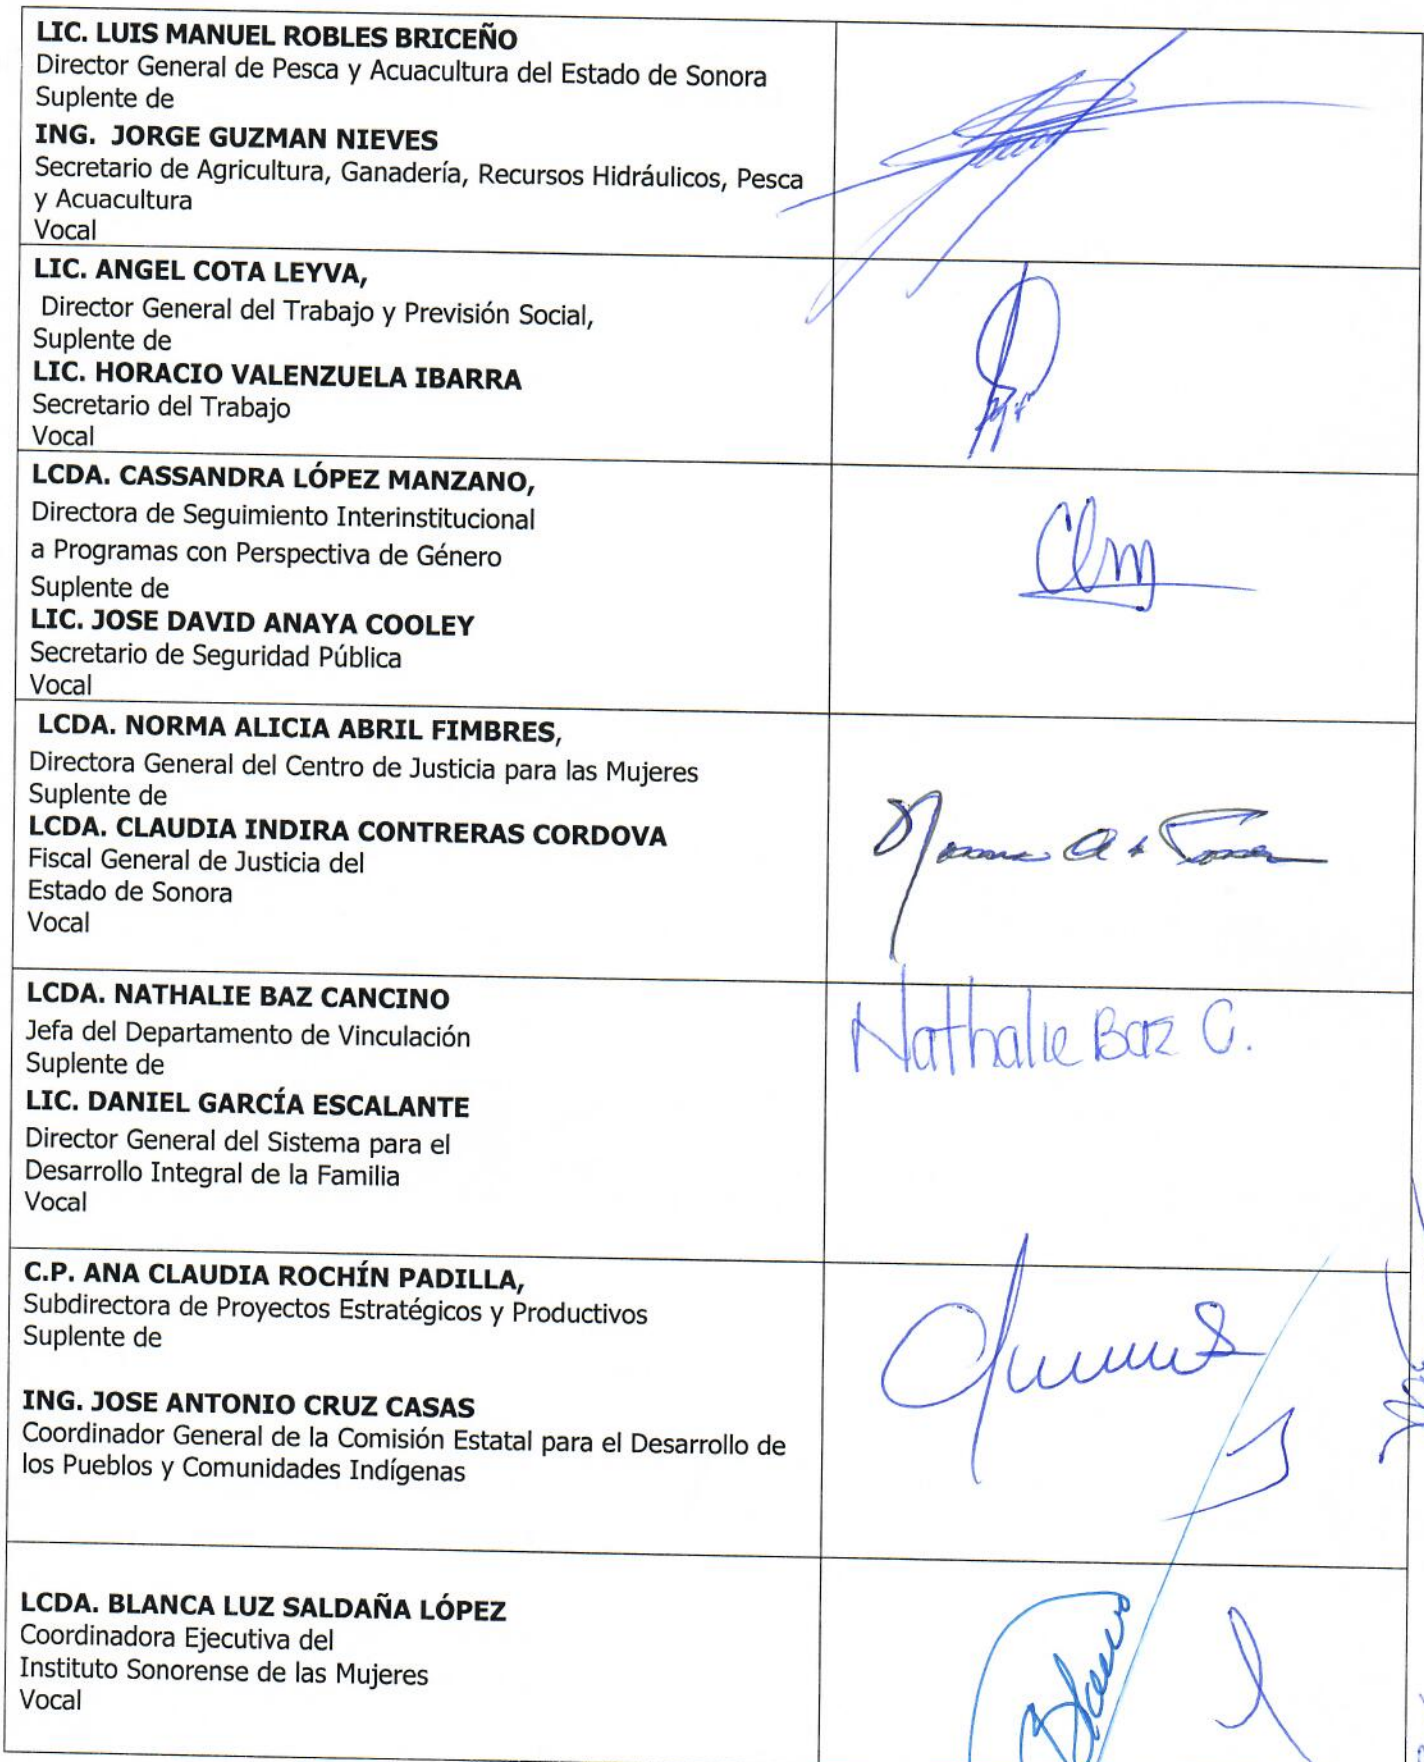 LIC. LUIS MANUEL ROBLES BRICEÑO
Director General de Pesca y Acuacultura del Estado de Sonora
Suplente de
ING. JORGE GUZMAN NIEVES
Secretario de Agricultura, Ganadería, Recursos Hidráulicos, Pesca
y Acuacultura
Vocal
LIC. ANGEL COTA LEYVA,
Director General del Trabajo y Previsión Social,
Suplente de
LIC. HORACIO VALENZUELA IBARRA
Secretario del Trabajo
Vocal
LCDA. CASSANDRA LÓPEZ MANZANO,
Directora de Seguimiento Interinstitucional
a Programas con Perspectiva de Género
Suplente de
LIC. JOSE DAVID ANAYA COOLEY
Secretario de Seguridad Pública
Vocal
Clm
LCDA. NORMA ALICIA ABRIL FIMBRES,
Directora General del Centro de Justicia para las Mujeres
Suplente de
LCDA. CLAUDIA INDIRA CONTRERAS CORDOVA
Fiscal General de Justicia del
Estado de Sonora
Vocal
LCDA. NATHALIE BAZ CANCINO
Jefa del Departamento de Vinculación
Suplente de
LIC. DANIEL GARCÍA ESCALANTE
Director General del Sistema para el
Desarrollo Integral de la Familia
Vocal
Nathalie Baz C.
C.P. ANA CLAUDIA ROCHÍN PADILLA,
Subdirectora de Proyectos Estratégicos y Productivos
Suplente de
ING. JOSE ANTONIO CRUZ CASAS
Coordinador General de la Comisión Estatal para el Desarrollo de
los Pueblos y Comunidades Indígenas
LCDA. BLANCA LUZ SALDAÑA LÓPEZ
Coordinadora Ejecutiva del
Instituto Sonorense de las Mujeres
Vocal